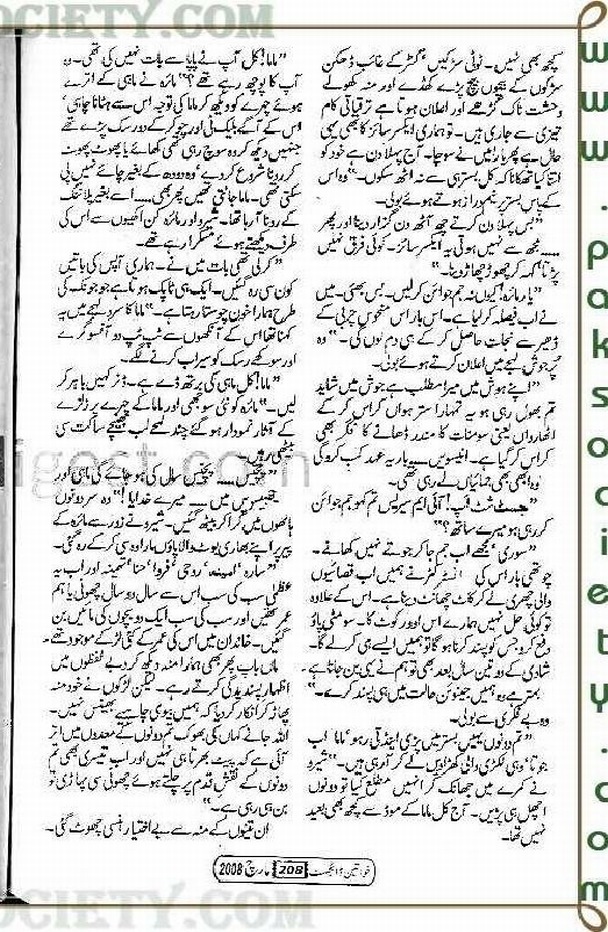 کچھ بھی نہیں۔ ٹوٹی سڑکیں، گٹر کے غائب ڈھکن
سڑکوں کے بیچوں بیچ پڑے کھڈے اور منہ کھولے
وحشت ناک گڑھے اور اعلان ہوتا ہے ترقیاتی کام
تیزی سے جاری ہیں۔ تو ہماری ایکسرسائز کا بھی یہی
حال ہے پھر یار! میں نے سوچا۔ آج پہلا دن ہے خود کو
اتنا تھکانا کہ کل بستر ہی سے نہ اٹھ سکوں۔" وہ اس
کے پاس بستر پر نیم دراز ہوتے ہوئے بولی۔
"بس پہلا دن کرتے چھ آٹھ دن گزار دینا اور پھر
..... مجھ سے نہیں ہوتی یہ ایکسرسائز۔ کوئی فرق نہیں
پڑتا، کہہ کر چھوڑ چھاڑ دینا۔"
"یار مائرہ! کیوں نہ جم جوائن کرلیں۔ بس بھئی۔ میں
نے اب فیصلہ کرلیا ہے۔ اس بار اس منحوس چربی کے
ڈھیر سے نجات حاصل کرکے ہی دم لوں گی۔" وہ
پرجوش لہجے میں اعلان کرتے ہوئے بولی۔
"اپنے ہوش میں میرا مطلب ہے جوش میں شاید
تم بھول رہی ہو یہ تمہارا ستر ہواں کراس کرکے
اٹھارواں یعنی سومنات کا مندر ڈھانے کا فگر بھی
کراس کرگیا ہے۔ انیسویں ..... بار یہ عہد کب کرو گی
وہ ابھی بھی جمائیاں لے رہی تھی۔
"جسٹ شٹ اپ! آئی ایم سیریس تم کہو جم جوائن
کر رہی ہو میرے ساتھ؟"
"سوری! مجھے اب جم جاکر جوتے نہیں کھانے۔
چوتھی بار اس کی انسٹرکٹر نے ہمیں اب قصائیوں
والی چھری لے کر کاٹ چھانٹ دینا ہے۔ اس کے علاوہ
تو کوئی حل نہیں ہمارے اس اوور کوٹ کا۔ سو مٹی پاؤ
دفع کرو جس کو پسند کرنا ہوگا تو ہمیں ایسے ہی کرلے گا۔
شادی کے دو تین سال بعد بھی تو ہم نے یہی بن جانا ہے۔
بہتر ہے وہ ہمیں جینوئن حالت میں ہی پسند کرے۔"
وہ بے فکری سے بولی۔
"تم دونوں یہیں بستر میں پڑی اینڈتی رہو، ماما اب
جوتا، وہی لکڑی والی کھڑاویں لے کر آرہی ہیں۔" شیرو
نے کمرے میں جھانک کر انہیں مطلع کیا تو دونوں
اچھل ہی پڑیں۔ آج کل ماما کے موڈ سے کچھ بھی بعید
نہیں تھا۔
"ماما! کل آپ نے پاپا سے بات نہیں کی تھی۔ وہ
آپ کا پوچھ رہے تھے؟" مائرہ نے ماہی کے اترے
ہوئے چہرے کو دیکھ کر ماما کی توجہ اس سے ہٹانا چاہی،
اس کے آگے بلیک ٹی اور چوکر کے دو رسک پڑے تھے
جنہیں دیکھ کر وہ سوچ رہی تھی کھائے یا پھوٹ پھوٹ
کر رونا شروع کردے، وہ دودھ کے بغیر چائے نہیں پی
سکتی تھی۔ ماما جانتی تھیں پھر بھی ..... اسے بغیر پلاننگ
کے رونا آرہا تھا۔ شیرو اور مائرہ کن اکھیوں سے اس کی
طرف دیکھتے ہوئے مسکرا رہے تھے۔
"کرلی تھی بات میں نے۔ ہماری آپس کی باتیں
کون سی رہ گئیں۔ ایک ہی ٹاپک ہوتا ہے جو جونک کی
طرح ہمارا خون چوستا رہتا ہے۔" ماما کا سرد لہجے میں یہ
کہنا تھا اس کے آنکھوں سے ٹپ ٹپ دو آنسو گرے
اور سوکھے رسک کو سیراب کرنے لگے۔
"ماما! کل ماہی کی برتھ ڈے ہے۔ ڈنر کہیں باہر کر
لیں۔" مائرہ کو نئی سوجھی اور ماما کے چہرے پر زلزلے
کے آثار نمودار ہوگئے چند لمحے لب بھینچے ساکت سی
بیٹھی رہیں۔
"پچیس ..... پچیس سال کی ہو جائے گی ماہی اور
چھبیسویں میں ..... میرے خدایا!" وہ سر دونوں
ہاتھوں میں گرا کر بیٹھ گئیں۔ شیرو نے زور سے مائرہ کے
پیر پر اپنے بھاری بوٹ والا پاؤں مارا وہ سی کرکے رہ گئی۔
"سائرہ، امینہ، روحی، فروا، حنا، ثمینہ اور اب یہ
عظمیٰ سب کی سب اس سے سال دو سال چھوٹی یا ہم
عمر تھیں اور سب کی سب ایک دو بچوں کی مائیں بن
گئیں۔ خاندان میں اس کی عمر کے کئی لڑکے موجود تھے۔
ماں باپ پھر بھی ہمارا منہ دیکھ کر دبے لفظوں میں
اظہار پسندیدگی کرتے رہے۔ لیکن لڑکوں نے خود منہ
پھاڑ کر انکار کردیا کہ ہمیں بیوی چاہیے بھینس نہیں۔
اللہ جانے کہاں کی بھوک تم دونوں کے معدوں میں اتر
آئی ہے کہ پیٹ بھرتا ہی نہیں اور اب تیسری بھی تم
دونوں کے نقش قدم پر چلتے ہوئے چھوٹی سی پہاڑی تو
بن ہی رہی ہے۔"
ان تینوں کے منہ سے بے اختیار ہنسی چھوٹ گئی۔
خواتین ڈائجسٹ 208 مارچ 2008
www.paksociety.com